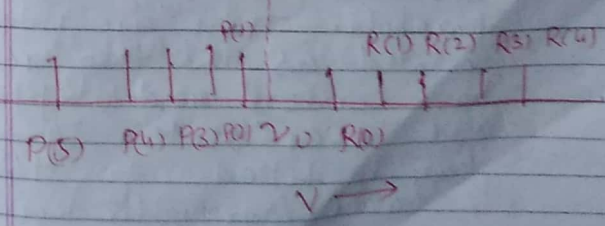 P(1)
R(1) R(2) R(3) R(4)
P(5) P(4) P(3) P(2) ν₀ R(0)
ν →